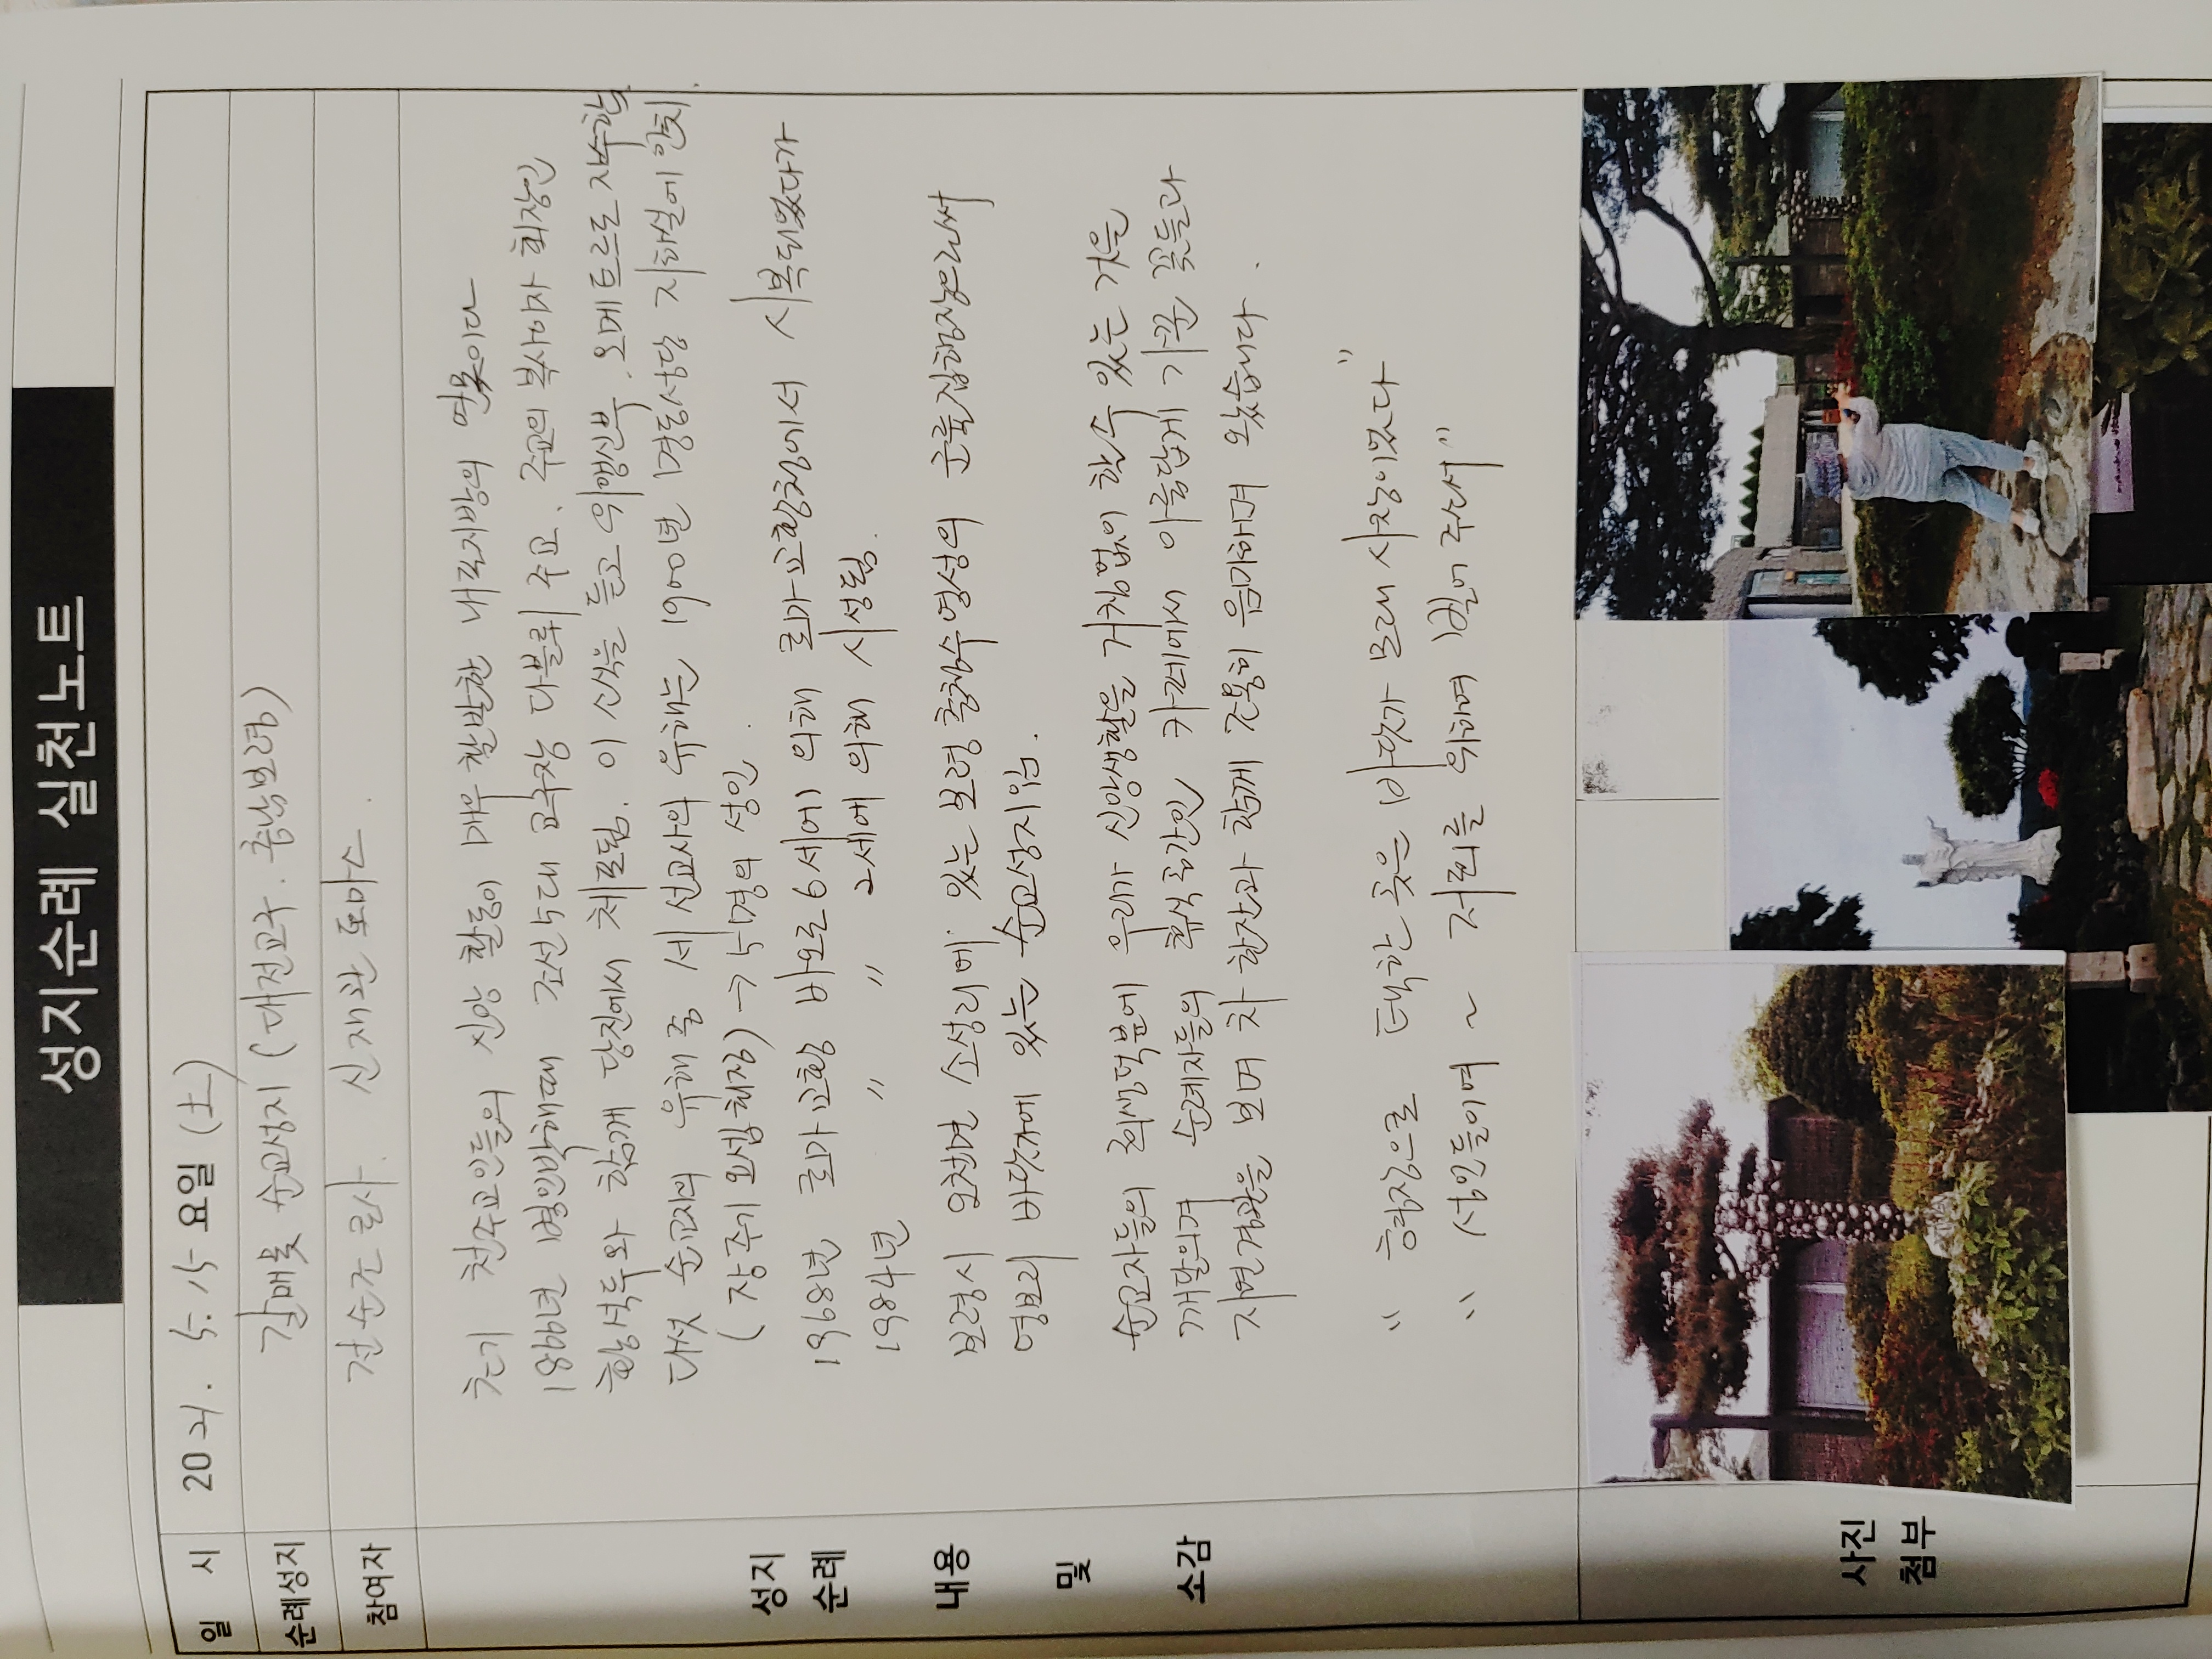 성지순례 실천노트
일 시 2021. 5. 15 요일 (土)
순례성지 갈매못 순교성지 (대전교구. 충남보령)
참여자 전순조 로사. 신재관 토마스.
초기 천주교인들의 신앙 활동이 매우 활발한 내포지방의 연못이다
1866년 병인박해때 조선5대 교구장 다블뤼 주교. 주교의 복사이자 회장인
황석두와 함께 당진에서 체포됨. 이 소식을 듣고 위앵신부. 오메트르도 자수함.
다섯 순교자의 유해중 세 선교사의 유해는 1900년 명동성당 지하실에 안치.
(장주기 요셉회장) → 5명의 성인.
1968년 로마교황 바오로6세에 의해 로마교황청에서 시복되었다가
1984년 〃 〃 2세에 의해 시성됨.
보령시 오천면 소성리에 있는 보령 충청수영성의 군률집행장으로써
영보리 바닷가에 있는 순교성지임.
순교자들의 희생덕분에 우리가 신앙생활을 거침없이 할수 있는 것을
깨달으며 순례자들의 휴식공간인 카페에서 아름답게 가꾼 꽃들과
자연경관을 보며 차 한잔과 함께 조용히 음미하며 왔습니다.
" 형장으로 택한 곳은 바닷가 모래 사장이었다 "
" 성인들이여 ~ 저희를 위하여 빌어 주소서 "
성지
순례
내용
및
소감
사진
첨부